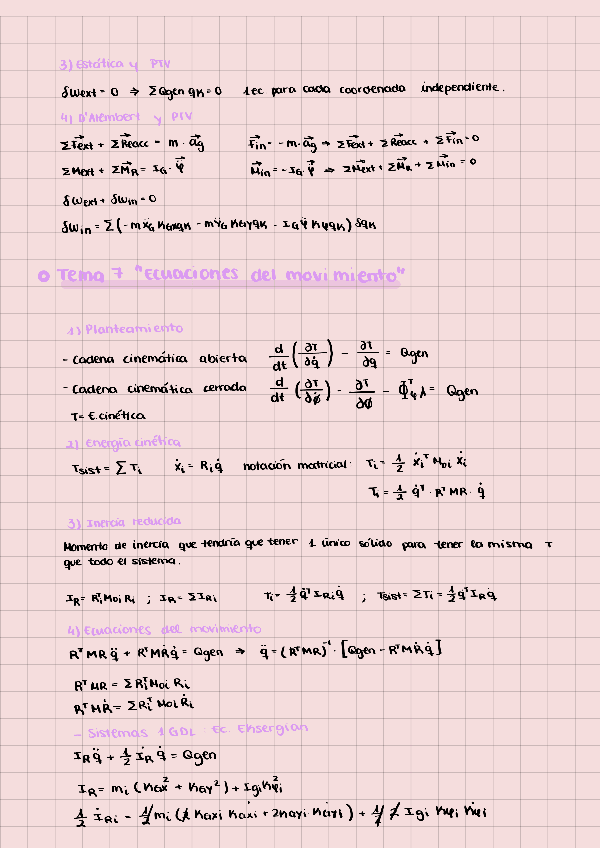 3) Estática y PTV
δWext = 0 ⇒ ΣQgen qK = 0 1ec para cada coordenada independiente.
4) D'Alembert y PTV
ΣFext + ΣReacc = m · ag Fin = - m·ag ⇒ ΣFext + ΣReacc + ΣFin = 0
ΣMext + ΣMR = IG · φ̈ Min = - IG · φ̈ ⇒ ΣMext + ΣMR + ΣMin = 0
δWext + δWin = 0
δWin = Σ(-mẍG KGxqK - mÿG KGyqK - IG φ̈ KφqK) δqK
Tema 7 "Ecuaciones del movimiento"
1) Planteamiento
- Cadena cinemática abierta d/dt (∂T/∂q̇) - ∂T/∂q = Qgen
- Cadena cinemática cerrada d/dt (∂T/∂φ̇) - ∂T/∂φ - Φᵀφ λ = Qgen
T = E.cinética
2) Energía cinética
Tsist = ΣTi ẋi = Ri q̇ notación matricial: Ti = 1/2 ẋiᵀ Moi ẋi
Ti = 1/2 q̇ᵀ · RᵀMR · q̇
3) Inercia reducida
Momento de inercia que tendría que tener 1 único sólido para tener la misma T
que todo el sistema.
IR = Riᵀ Moi Ri ; IR = ΣIRi Ti = 1/2 q̇ᵀ IRi q̇ ; Tsist = ΣTi = 1/2 q̇ᵀ IR q̇
4) Ecuaciones del movimiento
RᵀMR q̈ + RᵀMṘ q̇ = Qgen ⇒ q̈ = (RᵀMR)⁻¹ · [Qgen - RᵀMṘ q̇]
RᵀMR = ΣRiᵀ Moi Ri
RᵀMṘ = ΣRiᵀ Moi Ṙi
- Sistemas 1 GDL : Ec. Eksergian
IR q̈ + 1/2 İR q̇ = Qgen
IR = mi (KGx² + KGy²) + Igi Kφi²
1/2 İRi = 1/2 mi (2 KGxi K̇Gxi + 2KGyi K̇Gyi) + 1/2 2 Igi Kφi K̇φi